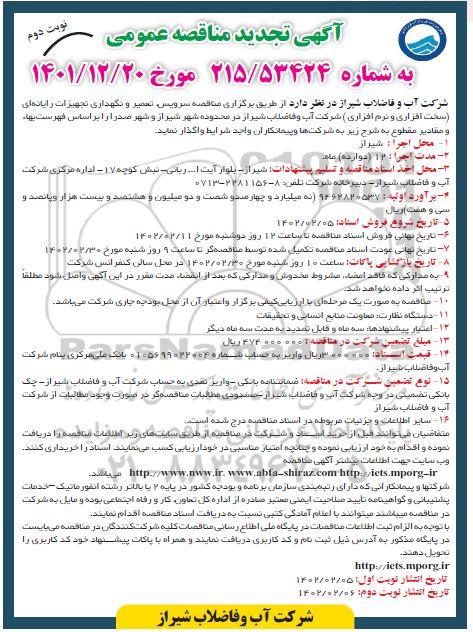 نوبت دوم
آگهی تجدید مناقصه عمومی
به شماره ۲۱۵/۵۳۴۲۴ مورخ ۱۴۰۱/۱۲/۲۰
شرکت آب و فاضلاب شیراز در نظر دارد از طریق برگزاری مناقصه سرویس، تعمیر و نگهداری تجهیزات رایانه‌ای
(سخت افزاری و نرم افزاری) شرکت آب وفاضلاب شیراز در محدوده شهر شیراز و شهر صدرا را براساس فهرست‌بهاء
و مقادیر مقطوع به شرح زیر به شرکت‌ها وپیمانکاران واجد شرایط واگذار نماید.
۱- محل اجرا : شیراز
۲- مدت اجرا : ۱۲ (دوازده) ماه.
۳- محل اخذ اسناد مناقصه و تسلیم پیشنهادات: شیراز- بلوار آیت ا... ربانی- نبش کوچه ۱۷- اداره مرکزی شرکت
آب و فاضلاب شیراز- دبیرخانه شرکت تلفن: ۸-۲۲۸۱۱۵۶-۰۷۱۳
۴- برآورد اولیه : ۹۴۶۲۸۲۰۵۳۷ (نه میلیارد و چهارصدو شصت و دو میلیون و هشتصد و بیست هزار وپانصد و
سی و هفت)ریال
۵-تاریخ شروع فروش اسناد: ۱۴۰۲/۰۲/۰۵
۶- تاریخ نهائی فروش اسناد مناقصه تا ساعت ۱۲ روز دوشنبه مورخ ۱۴۰۲/۰۲/۱۱
۷- تاریخ نهائی عودت اسناد مناقصه تکمیل شده توسط مناقصه‌گر تا ساعت ۹ روز شنبه مورخ ۱۴۰۲/۰۲/۳۰
۸- تاریخ بازگشایی پاکات: ساعت ۱۰ روز شنبه مورخ ۱۴۰۲/۰۲/۳۰ در محل سالن کنفرانس شرکت
۹- به مدارکی که فاقد امضاء، مشروط مخدوش و مدارکی که بعد از انقضاء مدت مقرر در این آگهی واصل شود مطلقاً
ترتیب اثر داده نخواهد شد.
۱۰- مناقصه به صورت یک مرحله‌ای با ارزیابی‌کیفی برگزار واعتبار آن از محل بودجه جاری شرکت می‌باشد.
۱۱- دستگاه نظارت: معاونت منابع انسانی و تحقیقات
۱۲- اعتبار پیشنهادها: سه ماه و قابل تمدید به مدت سه ماه دیگر
۱۳- مبلغ تضمین شرکت در مناقصه: ۴۷۴ ۰۰۰ ۰۰۰ ریال
۱۴- قیمت اسناد: ۳ ۰۰۰ ۰۰۰ریال واریز به حساب شماره ۰۱۰۵۶۹۹۰۲۲۰۰۴ بانک ملی‌مرکزی بنام شرکت
آب وفاضلاب شیراز.
۱۵- نوع تضمین شرکت در مناقصه: ضمانتنامه بانکی -واریز نقدی به حساب شرکت آب و فاضلاب شیراز- چک
بانکی تضمینی در وجه شرکت آب و فاضلاب شیراز-مسدودی مطالبات مناقصه‌گر در صورت وجود مطالبات از شرکت
آب و فاضلاب شیراز
۱۶- سایر اطلاعات و جزئیات مربوطه در اسناد مناقصه درج شده است.
متقاضیان می‌توانند قبل از خرید اسناد و شرکت در مناقصه از طریق سایت‌های زیر اطلاعات مناقصه را دریافت
نموده و اقدام به خود ارزیابی نموده و چنانچه امتیاز مناسبی در خودارزیابی کسب می‌نمایند، اسناد را خریداری کنند.
وب سایت جهت اطلاعات بیشتر آگهی مناقصه
http://www.nww.ir www.abfa-shiraz.com http://iets.mporg-ir می‌باشد.
شرکتها و پیمانکارانی که دارای رتبه‌بندی سازمان برنامه و بودجه کشور در پایه ۲ یا بالاتر رشته انفورماتیک – خدمات
پشتیبانی و گواهینامه تأیید صلاحیت ایمنی معتبر صادره از اداره کل تعاون، کار و رفاه اجتماعی بوده و مایل به شرکت
در مناقصه میباشند میتوانند با اعلام آمادگی کتبی نسبت به دریافت اسناد مناقصه اقدام نمایند.
با توجه به الزام ثبت اطلاعات مناقصات در پایگاه ملی اطلاع رسانی مناقصات کلیه شرکت‌کنندگان در مناقصه می‌بایست
در پایگاه مذکور به آدرس ذیل ثبت نام و کد کاربری دریافت نمایند و همراه با پاکات پیشنهاد خود کد کاربری را
تحویل دهند.
http://iets.mporg.ir
تاریخ انتشار نوبت اول: ۱۴۰۲/۰۲/۰۵
تاریخ انتشار نوبت دوم: ۱۴۰۲/۰۲/۰۶
شرکت آب وفاضلاب شیراز